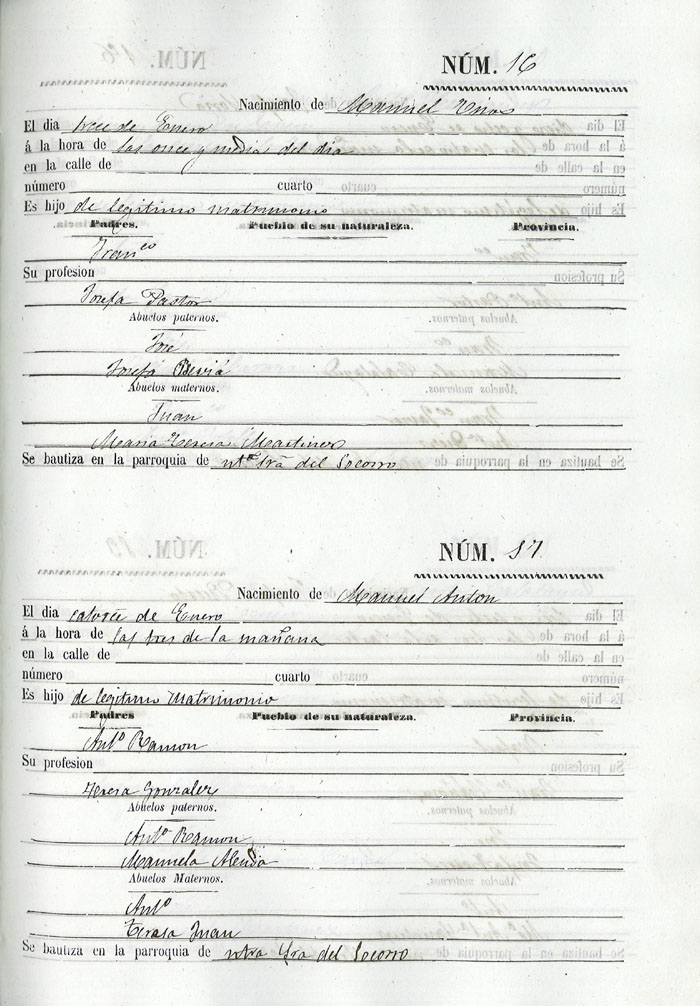 NÚM. 16
Nacimiento de Manuel
El dia trece de Enero
á la hora de las once y media del dia
en la calle de
número cuarto
Es hijo de legitimo matrimonio
Padres. Pueblo de su naturaleza. Provincia.
Fran.co
Su profesion
Josefa Pastor
Abuelos paternos.
José
Josefa Beviá
Abuelos maternos.
Juan
Maria Teresa Martinez
Se bautiza en la parroquia de ntra Sra del Socorro
NÚM. 17
Nacimiento de Manuel Anton
El dia catorce de Enero
á la hora de las tres de la mañana
en la calle de
número cuarto
Es hijo de legitimo Matrimonio
Padres Pueblo de su naturaleza. Provincia.
Ant.o Ramon
Su profesion
Teresa Gonzalez
Abuelos paternos.
Ant.o Ramon
Manuela Alenda
Abuelos Maternos.
Ant.o
Teresa Juan
Se bautiza en la parroquia de ntra Sra del Socorro